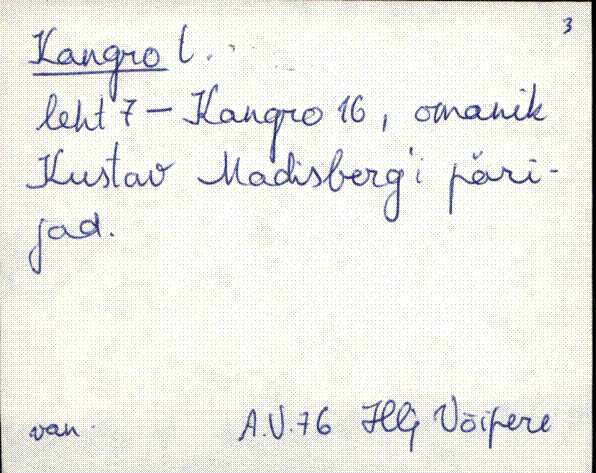 3
Kangro l.
leht 7 – Kangro 16, omanik
Kustav Madisberg'i päri-
jad.
van. A.V.76 HlG Võipere